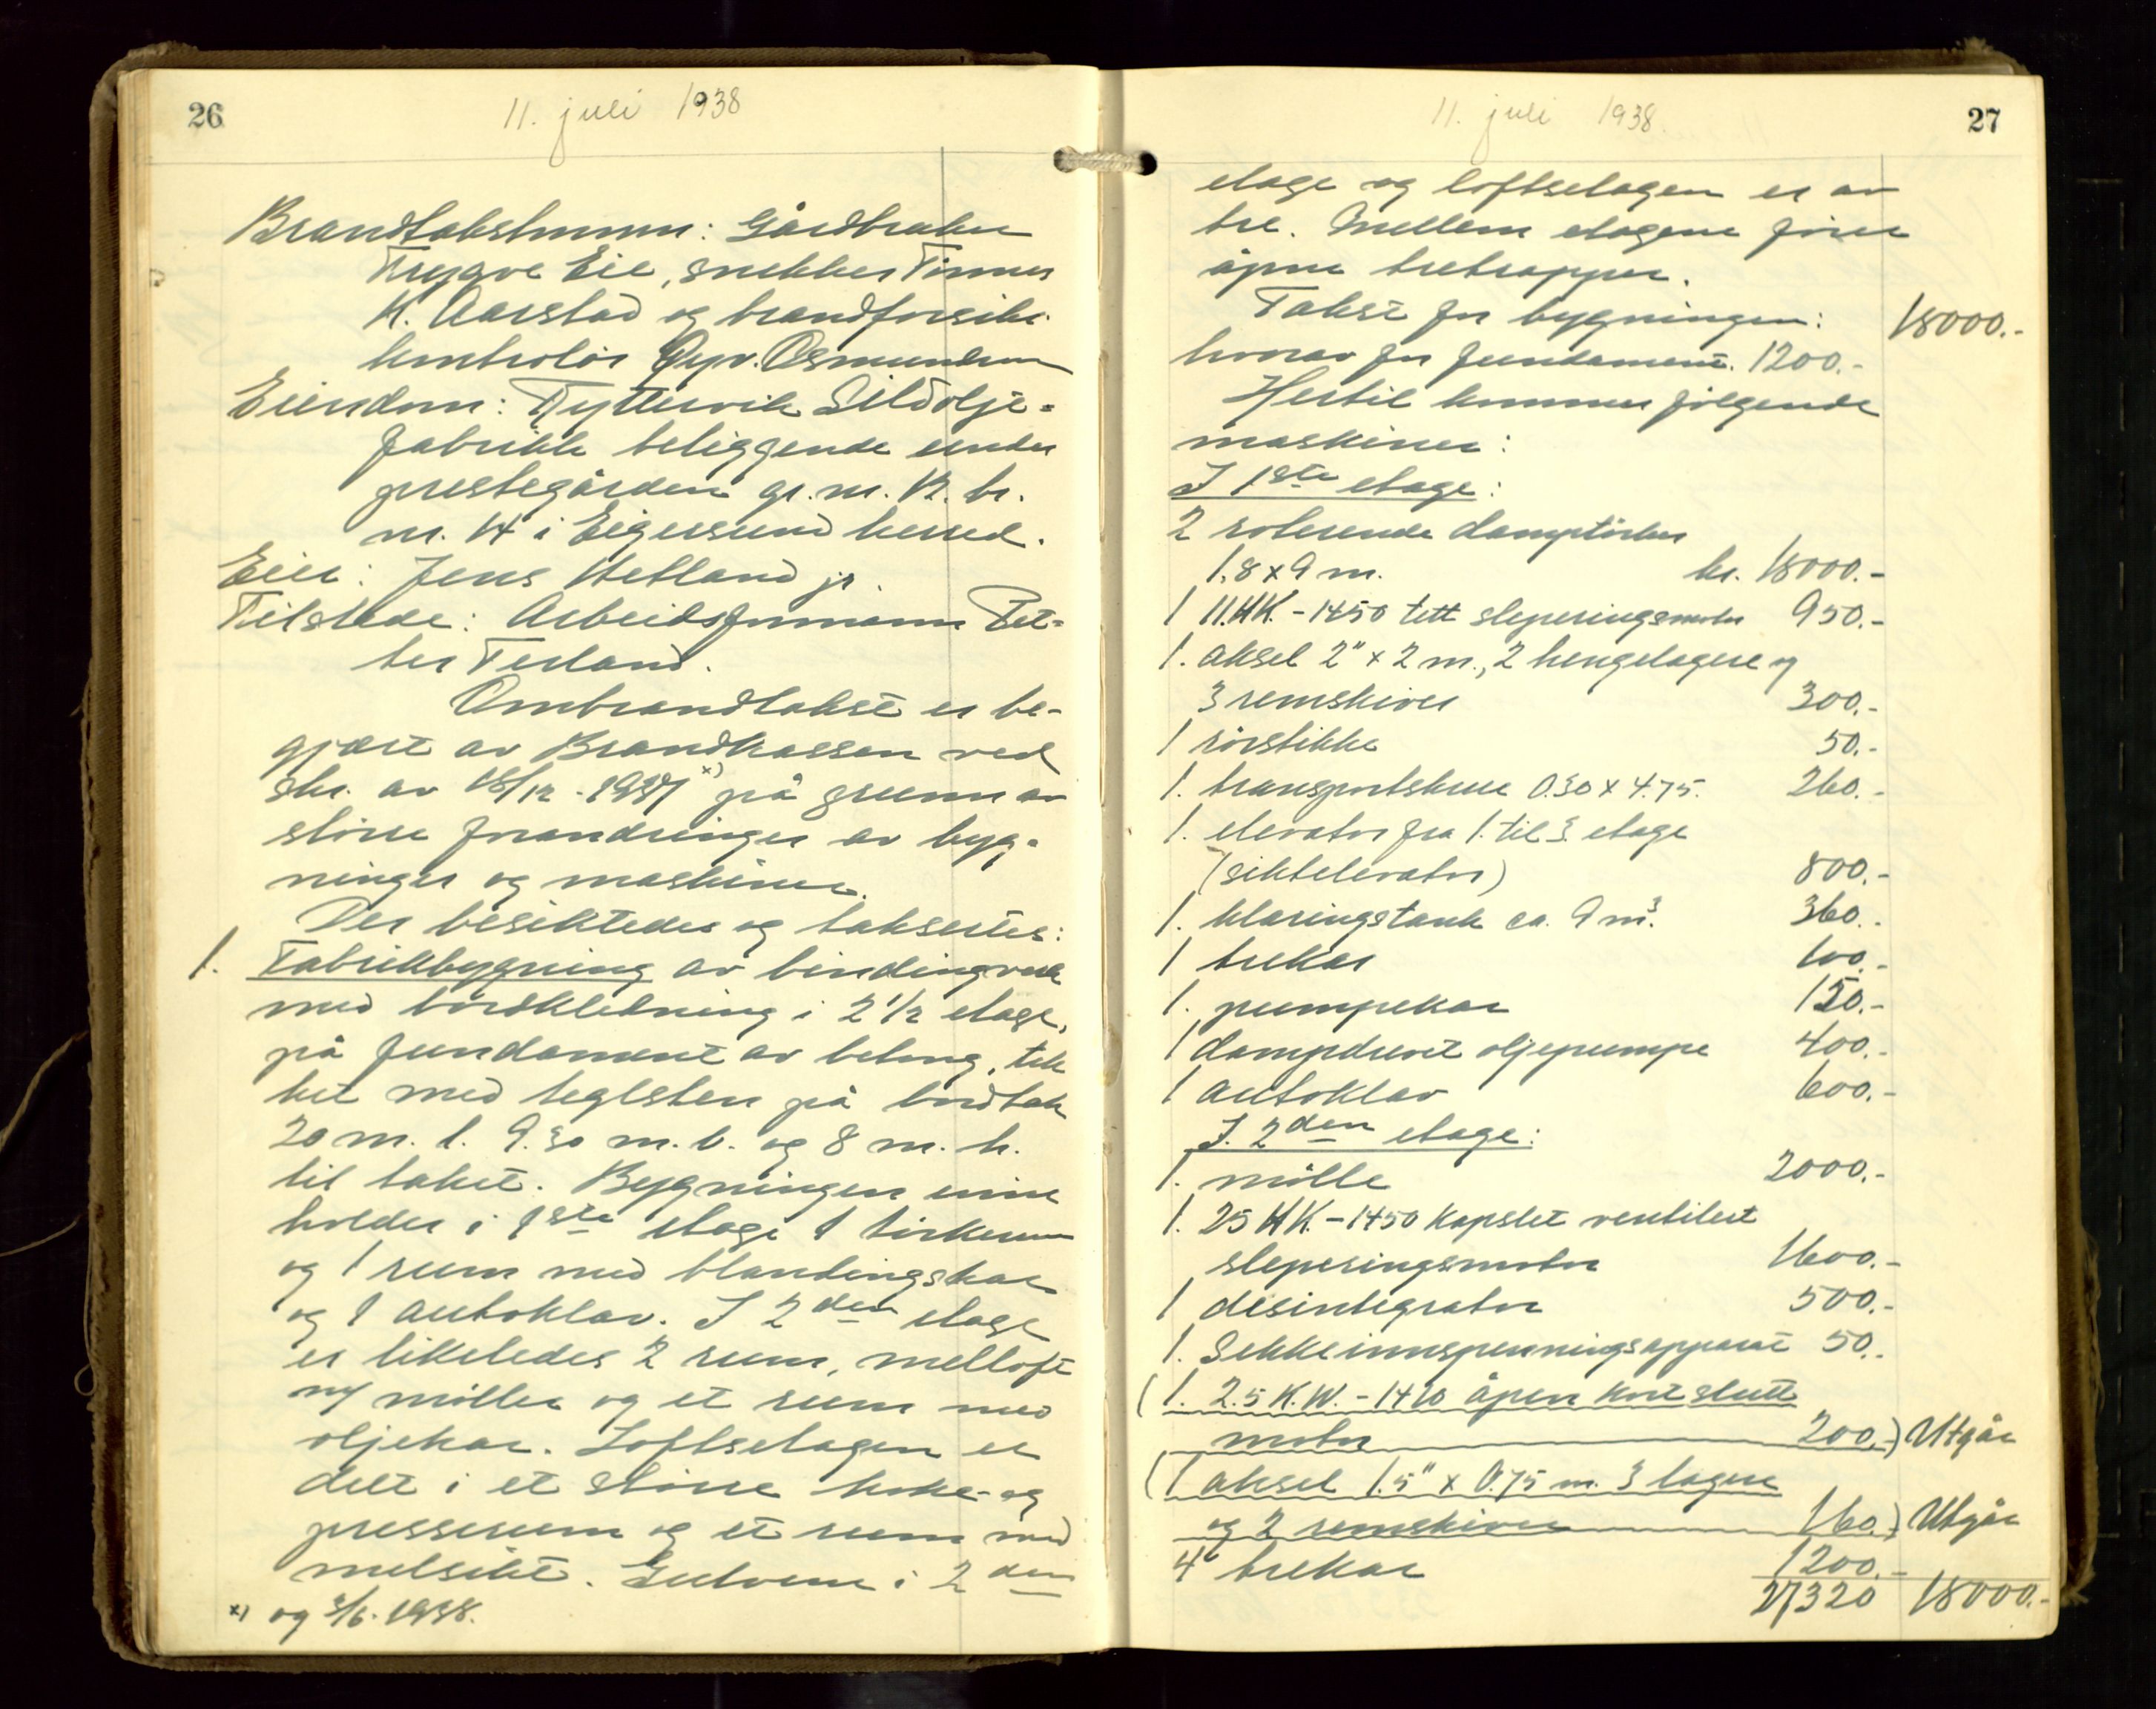 26
11. juli 1938
Brandtakstmenn: Gårdbruker
Trygve Eie, snekker Tønnes
K. Aarstad og brandforsikr.
kontrolør Asmundsen
Eiendom: Tyttervik Sildolje-
fabrikk beliggende under
prestegården gr. nr. 12. br.
nr. 14 i Eigersund herred.
Eier: Jens Hetland jr.
Tilstede: Arbeidsformann Pet-
ter Terland.
Ombrandtakst er be-
gjært av Brandkassen ved
skr. av 18/12 - 1937 x) på grunn av
større forandringer av byg-
ninger og maskiner.
Der besiktedes og taksertes:
1. Fabrikbygning av bindingverk
med bordkledning i 2 1/2 etage,
på fundament av betong, tek
ket med teglsten på bordtak
20 m. l. 9.30 m. b. og 8 m. h.
til taket. Bygningen inne
holder i 1ste etage 1 tørkerum
og 1 rum med blandingskar
og 1 autoklav. I 2den etage
er likeledes 2 rum, melloft
m/ møller og et rum med
oljekar. Loftsetagen er
delt i et større koke- og
presserum og et rum med
melsikt. Gulvene i 2den
x) og 3/6. 1938.
11. juli 1938.
27
etage og loftsetagen er av
tre. Mellem etagene fører
åpne tretrapper.
Takst for bygningen: 18000.-
hvorav for fundament. 1200.-
Hertil kommer følgende
maskiner:
I 1ste etage:
2 roterende damptørker
1,8 x 9 m. kr. 18000.-
1 11.HK. - 1450 tett sleperingsmotor 950.-
1. aksel 2" x 2 m., 2 hengelagere og
3 remskiver 300.-
1 rørstikke 50.-
1. transportskrue 0.30 x 4.75. 260.-
1. elevator fra 1. til 3. etage
(siktelevator) 800.-
1. klaringstank ca. 9 m³. 360.-
1 trekar 100.-
1. pumpekar 150.-
1 dampdrevet oljepumpe 400.-
1 autoklav 600.-
I. 2den etage:
1. mølle 2000.-
1. 25 HK. - 1450 kapslet ventilert
sleperingsmotor 1600.-
1 desintegrator 500.-
1. Sekkeinnspenningsapparat 50.-
(1. 2.5 K.W. - 1420 åpen kortslutt
motor 200.-) Utgår
(1 aksel 1.5" x 0.75 m. 3 lagere
og 2 remskiver 160.-) Utgår
4 trekar 1200.-
27320 18000.-